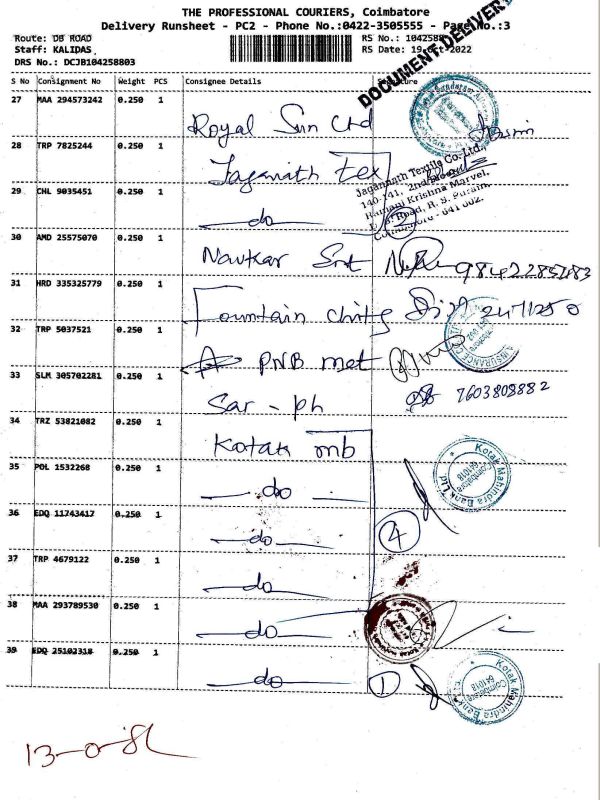 THE PROFESSIONAL COURIERS, Coimbatore
Delivery Runsheet - PC2 - Phone No.:0422-3505555 - Page No.:3
Route: DB ROAD RS No.: 1042588
Staff: KALIDAS. RS Date: 19 Oct 2022
DRS No.: DCJB104258803
DOCUMENT DELIVERY
S No Consignment No Weight PCS Consignee Details Signature
27 MAA 294573242 0.250 1 Royal Sun Ltd
28 TRP 7825244 0.250 1 Jaganath Tex
Jagannath Textile Co. Ltd.,
140-141, 2nd
Krishna Marvel,
Road, R. S. Puram,
Coimbatore - 641 002.
29 CHL 9035451 0.250 1 do 2
30 AMD 25575070 0.250 1 Navkar
31 HRD 335325779 0.250 1 Fountain
INSURANCE
32 TRP 5037521 0.250 1 PNB met
33 SLM 305702281 0.250 1 Sar - ph 7603808882
34 TRZ 53821082 0.250 1 Kotak mb
Kotak Mahindra Bank Ltd
Coimbatore
641018
35 POL 1532268 0.250 1 do
36 EDQ 11743417 0.250 1 do 4
37 TRP 4679122 0.250 1 do
38 MAA 293789530 0.250 1 do
39 EDQ 25102318 0.250 1 do 1
Kotak Mahindra Bank
Coimbatore
641018